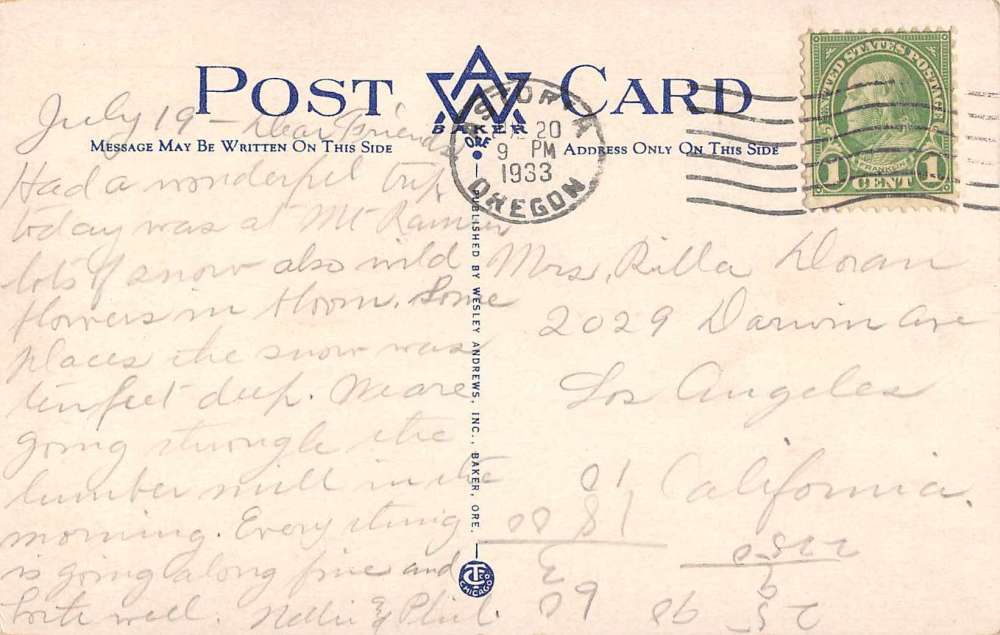 POST CARD
AW
BAKER
MESSAGE MAY BE WRITTEN ON THIS SIDE
ADDRESS ONLY ON THIS SIDE
ASTORIA
ORE
20
9 PM
1933
OREGON
UNITED STATES POSTAGE
FRANKLIN
1 CENT 1
July 19 - Dear Friends
Had a wonderful trip
today was at Mt Rainier
lots of snow also wild
flowers in bloom. Some
places the snow was
ten feet deep. We are
going through the
lumber mill in the
morning. Every thing
is going along fine and
both well. Nellie & Phil.
PUBLISHED BY WESLEY ANDREWS, INC., BAKER, ORE.
CHICAGO
Mrs. Rilla Doran
2029 Darwin Ave
Los Angeles
California.